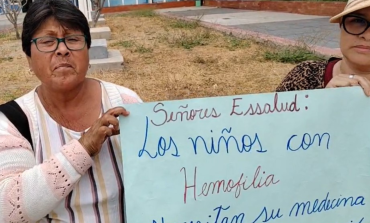 Señores Essalud:
Los niños con
Hemofilia
Necesitan su medicina